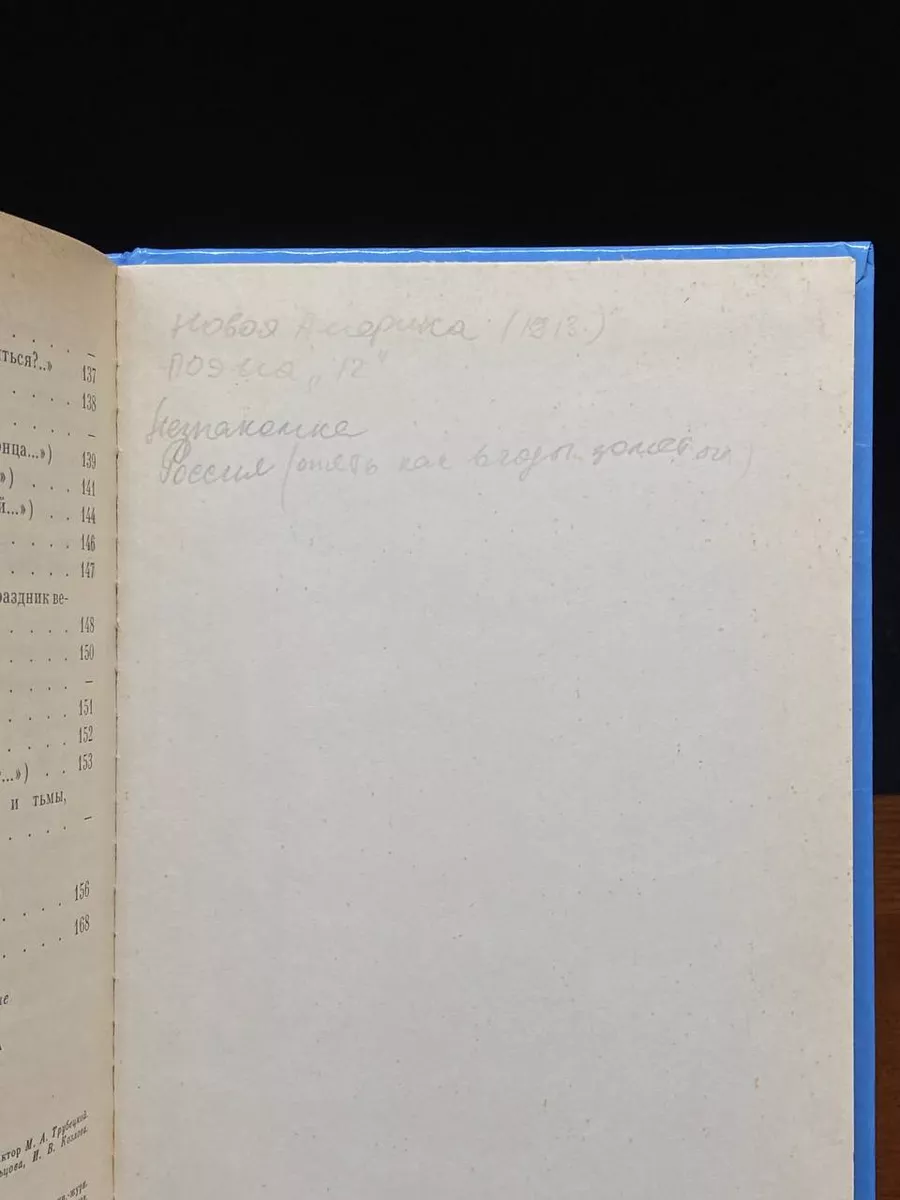 ться?..»
137
138
онца...»)
139
») 141
й...») 144
146
147
раздник ве-
148
150
151
152
...») 153
и тьмы,
156
168
ктор М. А. Трубецкой.
ьцова, И. В. Козлова.
Новая Америка (1913.)
Поэма „12"
Незнакомка
Россия (опять как в годы золотые)